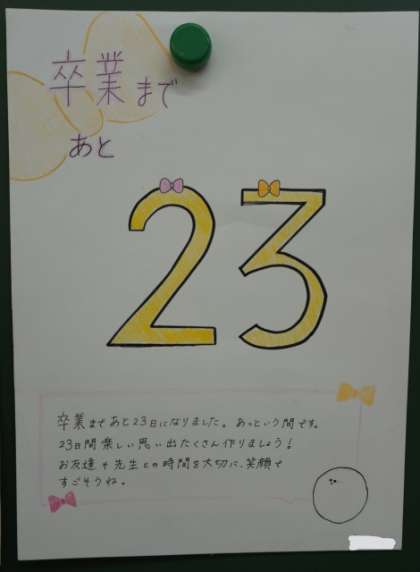 卒業まで
あと
23
卒業まであと23日になりました。あっという間です。
23日間楽しい思い出たくさん作りましょう!
お友達や先生との時間を大切に、笑顔で
すごそうね。